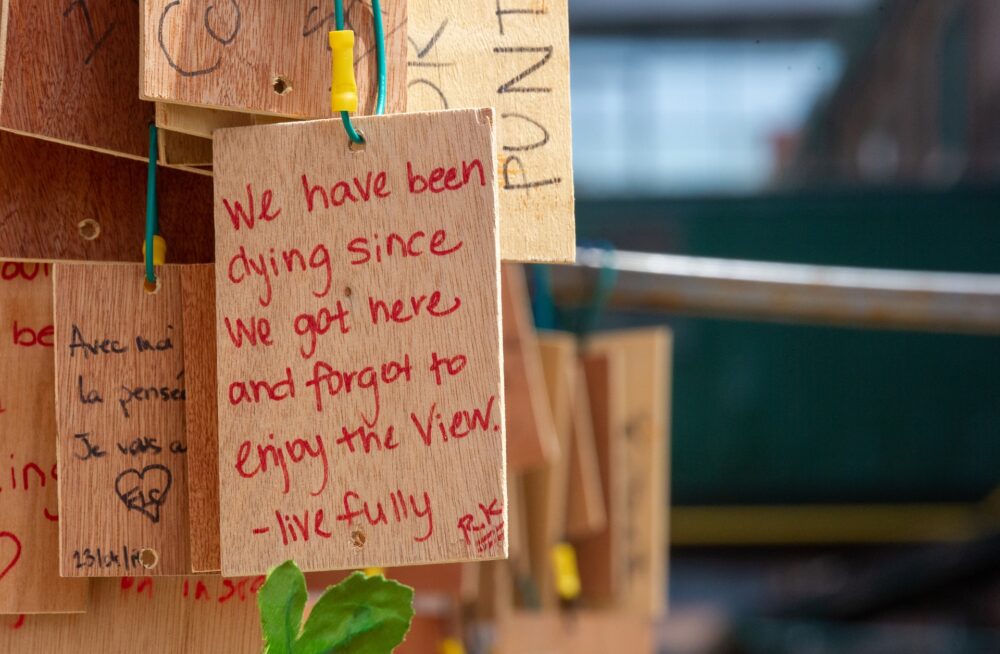 CO
OK
PUNT
We have been
dying since
We got here
and forgot to
enjoy the View.
-live fully
R.K
be
Avec moi
la pensée
Je vous a
ing